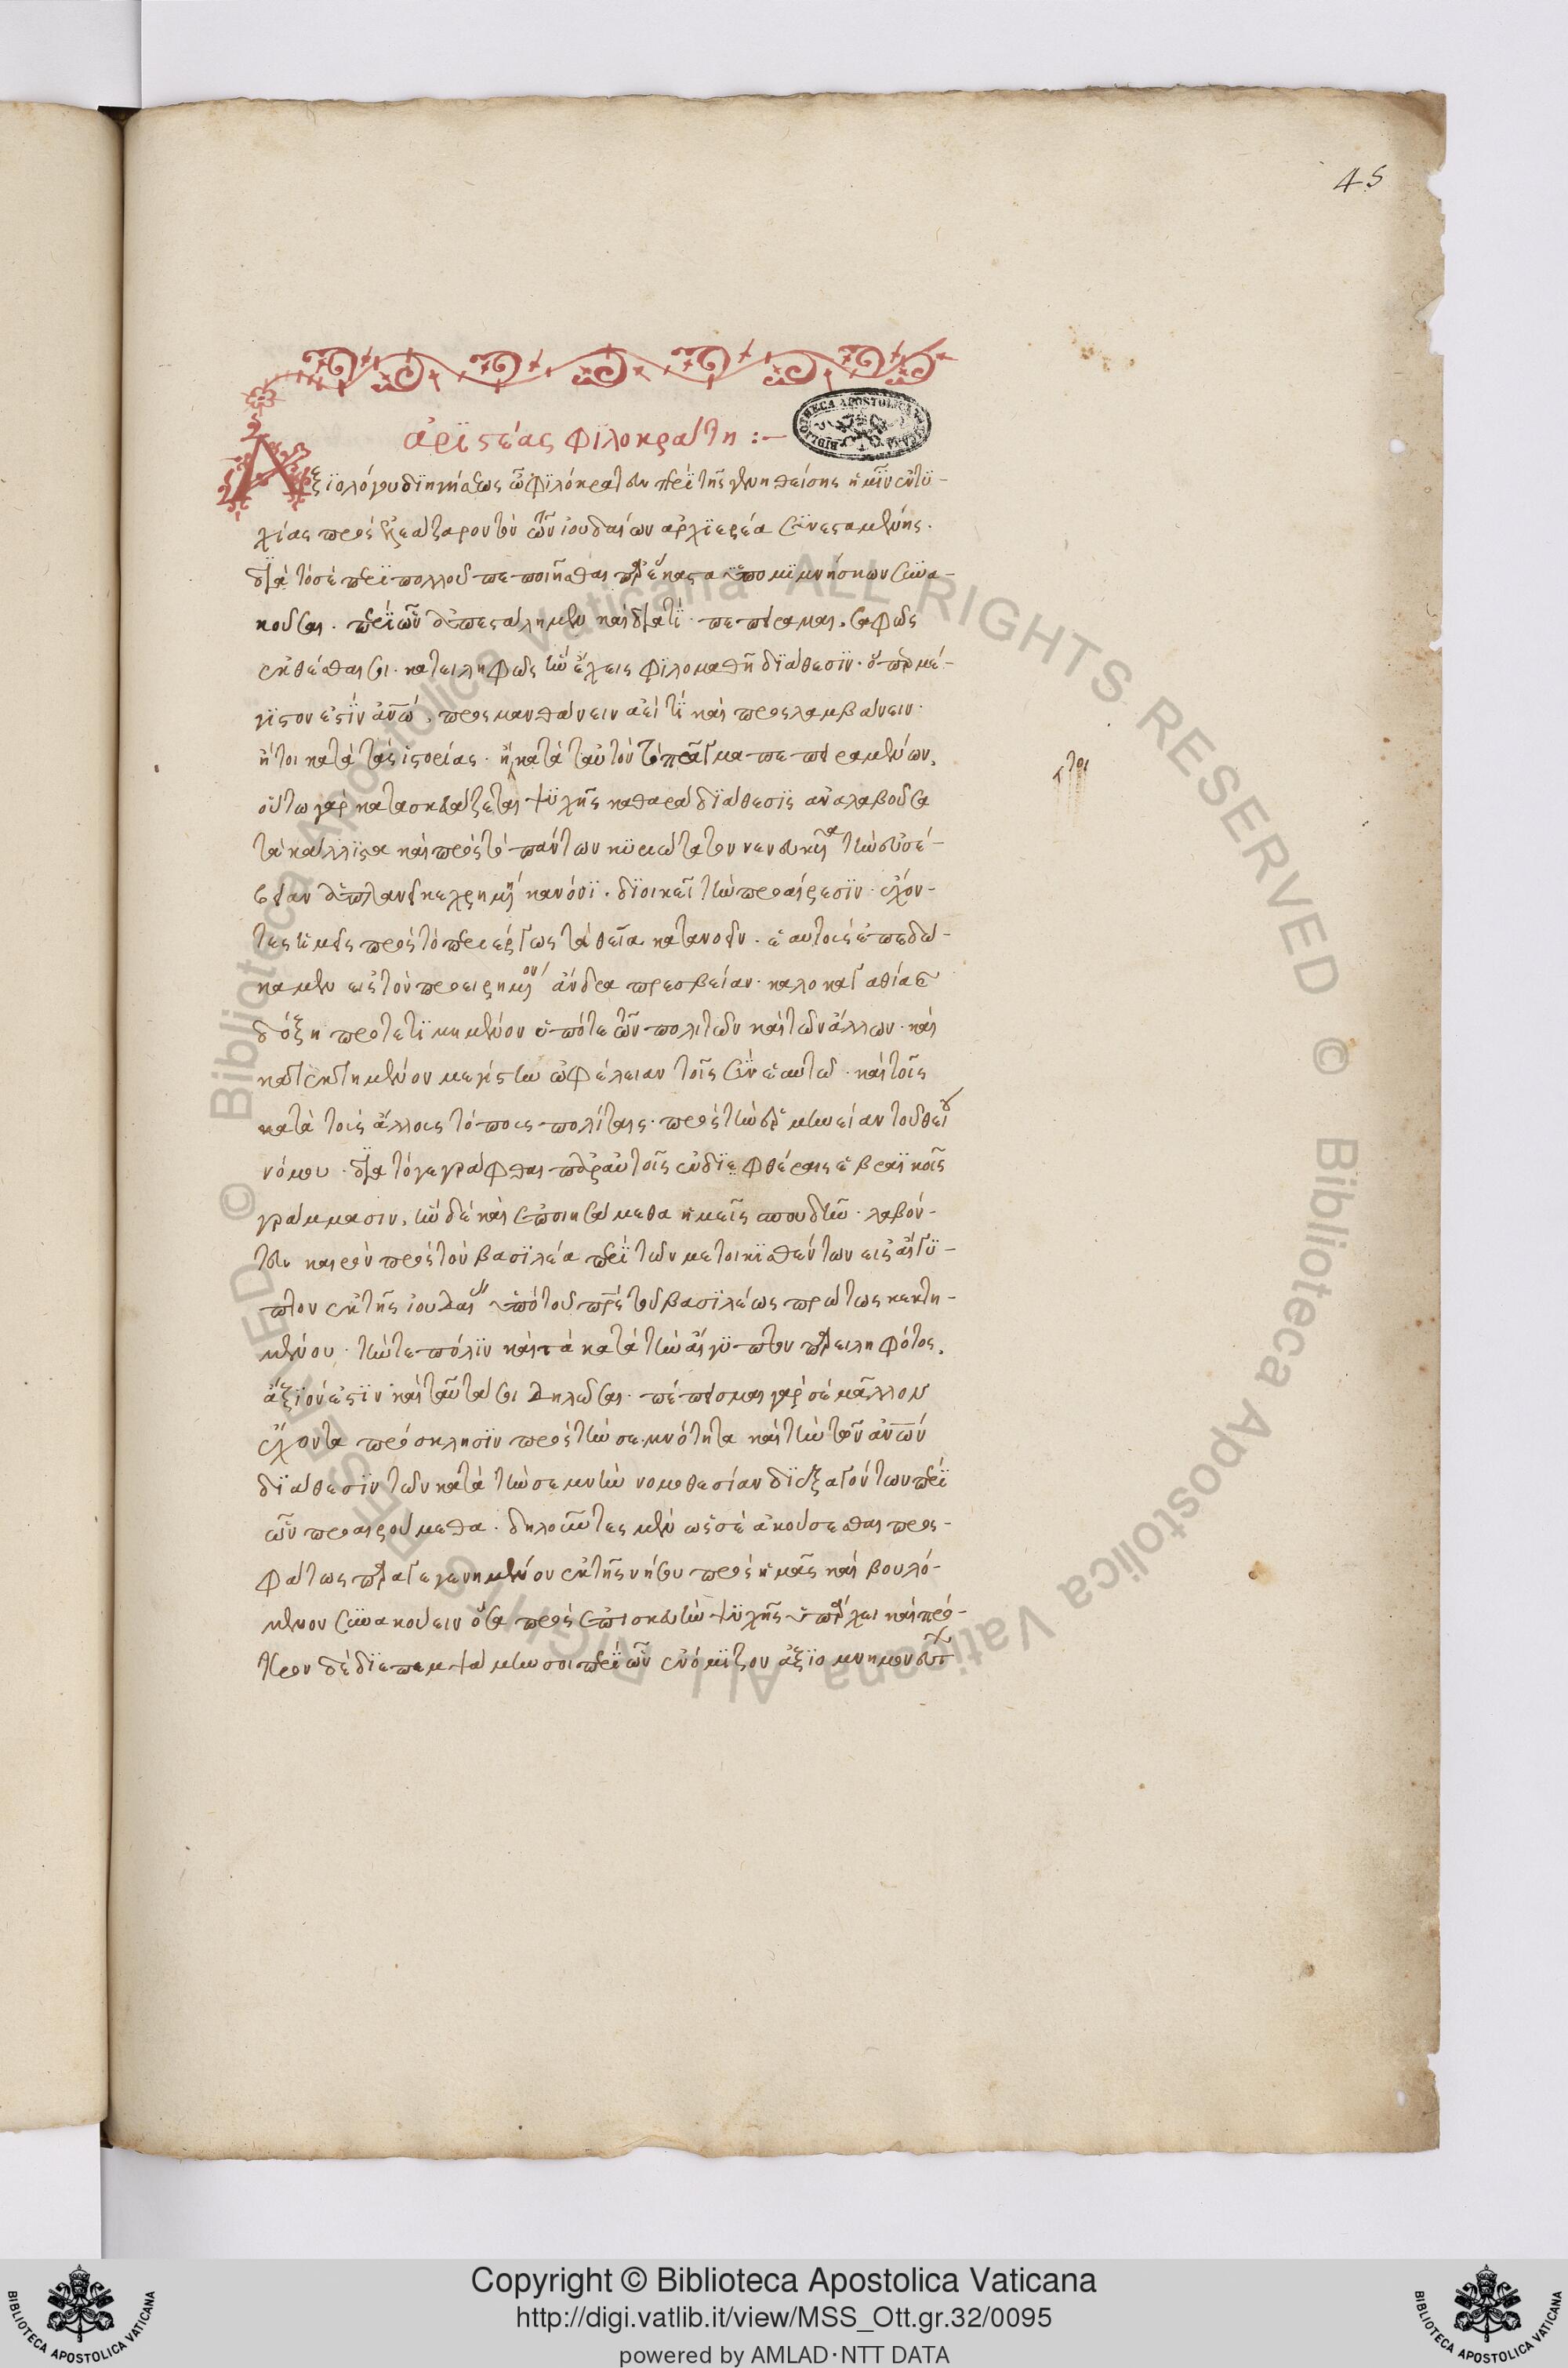 45
ἀρϊστέας φϊλοκράτη :–
Ἀξϊολόγου διηγήσεως ὦ φϊλόκρατες περὶ τῆς γενηθείσης ἡμῖν ἐντϋ-
χίας πρὸς ἐλεάζαρον τὸν τῶν ἰουδαίων ἀρχϊερέα σϋνεσταμένης.
διὰ τὸ σὲ περὶ πολλοῦ πεποιῆσθαι παρέκαστα ὑπομϊμνήσκων σϋνα-
κοῦσαι. περὶ ὧν ἀπεστάλημεν καὶ διατί. πεπείραμαι. σαφῶς
ἐκθέσθαι σοι. κατειληφὼς ἣν ἔχεις φϊλομαθῆ δϊάθεσϊν. ὅπερ μέ-
γϊστον ἐστὶν ἀνῶ. προσμανθάνειν ἀεί τϊ καὶ προσλαμβάνειν.
ἤτοι κατὰ τὰς ἱστορίας. ἢ κατὰ ταὐτὸν τὸ πρᾶγμα πεπειραμένων.
τοι
οὕτω γὰρ κατασκευάζεται ψϋχῆς καθαρὰ δϊάθεσϊς ἀναλαβοῦσα
τὰ κάλλϊστα καὶ πρὸς τὸ πάντων κϋριώτατον νενευκῖα τὴν εὐσέ-
βειαν ἀπλανεῖ κεχρημένη κανόνϊ. δϊοικεῖ τὴν προαίρεσϊν ἐχόν-
τες ἡμεῖς πρὸς τὸ περιέργως τὰ θεῖα κατανοεῖν. ἑαυτοὺς ἐπεδώ-
καμεν εἰς τὸν προειρημένον ἄνδρα πρεσβείαν. καλοκαγαθίας
δόξη προτετϊμημένον ὑπό τε τῶν πολιτῶν καὶ τῶν ἄλλων. καὶ
κατεκτημένον μεγίστην ὠφέλειαν τοῖς σϋν ἑαυτῶ. καὶ τοῖς
κατὰ τοὺς ἄλλους τόπους πολίταις. πρὸς τὴν ἑρμηνείαν τοῦ θείου
νόμου. διὰ τὸ γεγράφθαι παρ' αὐτοῖς ἐν δϊεφθέραις ἑβραϊκοῖς
γράμμασιν. ἣν δὲ καὶ ἐποιησάμεθα ἡμεῖς σπουδῆ. λαβόν-
τες καιρὸν πρὸς τὸν βασϊλέα περὶ τῶν μετοικϊσθέντων εἰς αἴγϋ-
πτον ἐκ τῆς ἰουδαίας ὑπὸ τοῦ πρς τοῦ βασϊλέως πρώτως κεκτη-
μένου. τήν τε πόλϊν καὶ τὰ κατὰ τὴν αἴγϋπτον παρειληφότος.
ἄξϊόν ἐστϊν καὶ ταῦτά σοι δηλῶσαι. πέπεισμαι γὰρ σὲ μᾶλλον
ἔχοντα πρόσκλησϊν πρὸς τὴν σεμνότητα καὶ τὴν τῶν ἀνῶν
δϊάθεσϊν τῶν κατὰ τὴν σεμνὴν νομοθεσίαν δϊεξαγόντων περὶ
ὧν προαιρούμεθα. δηλοῦντες μὲν ὡς σὲ ἀκούσεσθαι προς-
φάτως παραγεγενημένον ἐκ τῆς νήσου πρὸς ἡμᾶς καὶ βουλό-
μενον σϋνακούειν ὅσα πρὸς ἐπισκευὴν ψϋχῆς ὑπάρχει καὶ πρό-
τερον δὲ δϊεπεμψάμην σοι περὶ ὧν ἐνόμϊζον ἀξϊομνημονεύτ
Copyright © Biblioteca Apostolica Vaticana
http://digi.vatlib.it/view/MSS_Ott.gr.32/0095
powered by AMLAD·NTT DATA